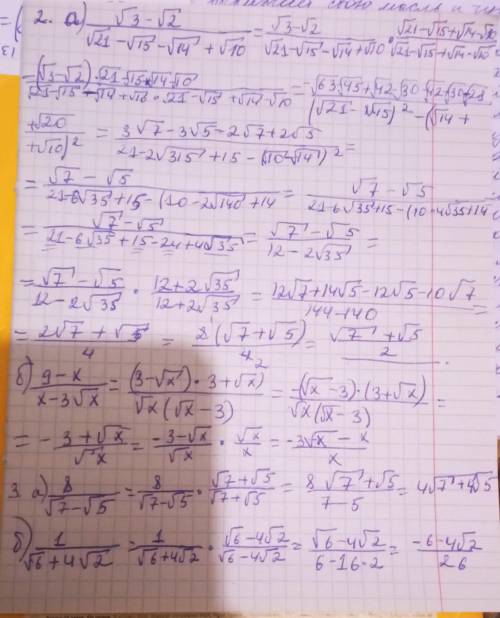 2. а) (√3-√2)/(√21-√15-√14+√10) = (√3-√2)/(√21-√15-√14+√10) · (√21-√15+√14-√10)/(√21-√15+√14-√10)
= (√3-√2)·√21-√15+√14-√10/(√21-√15-√14+√10·√21-√15+√14-√10) = √63-√45+√42-√30-√42+√30-√28/((√21-√15)²-(√14+
+√20/+√10)² = (3√7-3√5-2√7+2√5)/(21-2√315+15-(√10-√14)²) =
= (√7-√5)/(21-6√35+15-(10-2√140+14) = (√7-√5)/(21-6√35+15-(10-4√35+14)
= (√7-√5)/(21-6√35+15-24+4√35) = (√7-√5)/(12-2√35) =
= (√7-√5)/(12-2√35) · (12+2√35)/(12+2√35) = (12√7+14√5-12√5-10√7)/(144-140) =
= (2√7+√5)/4 = 2(√7+√5)/4 2 = (√7+√5)/2.
б) (9-x)/(x-3√x) = (3-√x)·3+√x)/(√x(√x-3)) = -(√x-3)·(3+√x)/(√x(√x-3)) =
= -(3+√x)/√x = (-3-√x)/√x · √x/x = (-3√x-x)/x
3. а) 8/(√7-√5) = 8/(√7-√5) · (√7+√5)/(√7+√5) = (8√7+√5)/(7-5) = 4√7+4√5
б) 1/(√6+4√2) = 1/(√6+4√2) · (√6-4√2)/(√6-4√2) = (√6-4√2)/(6-16·2) = (-6-4√2)/26